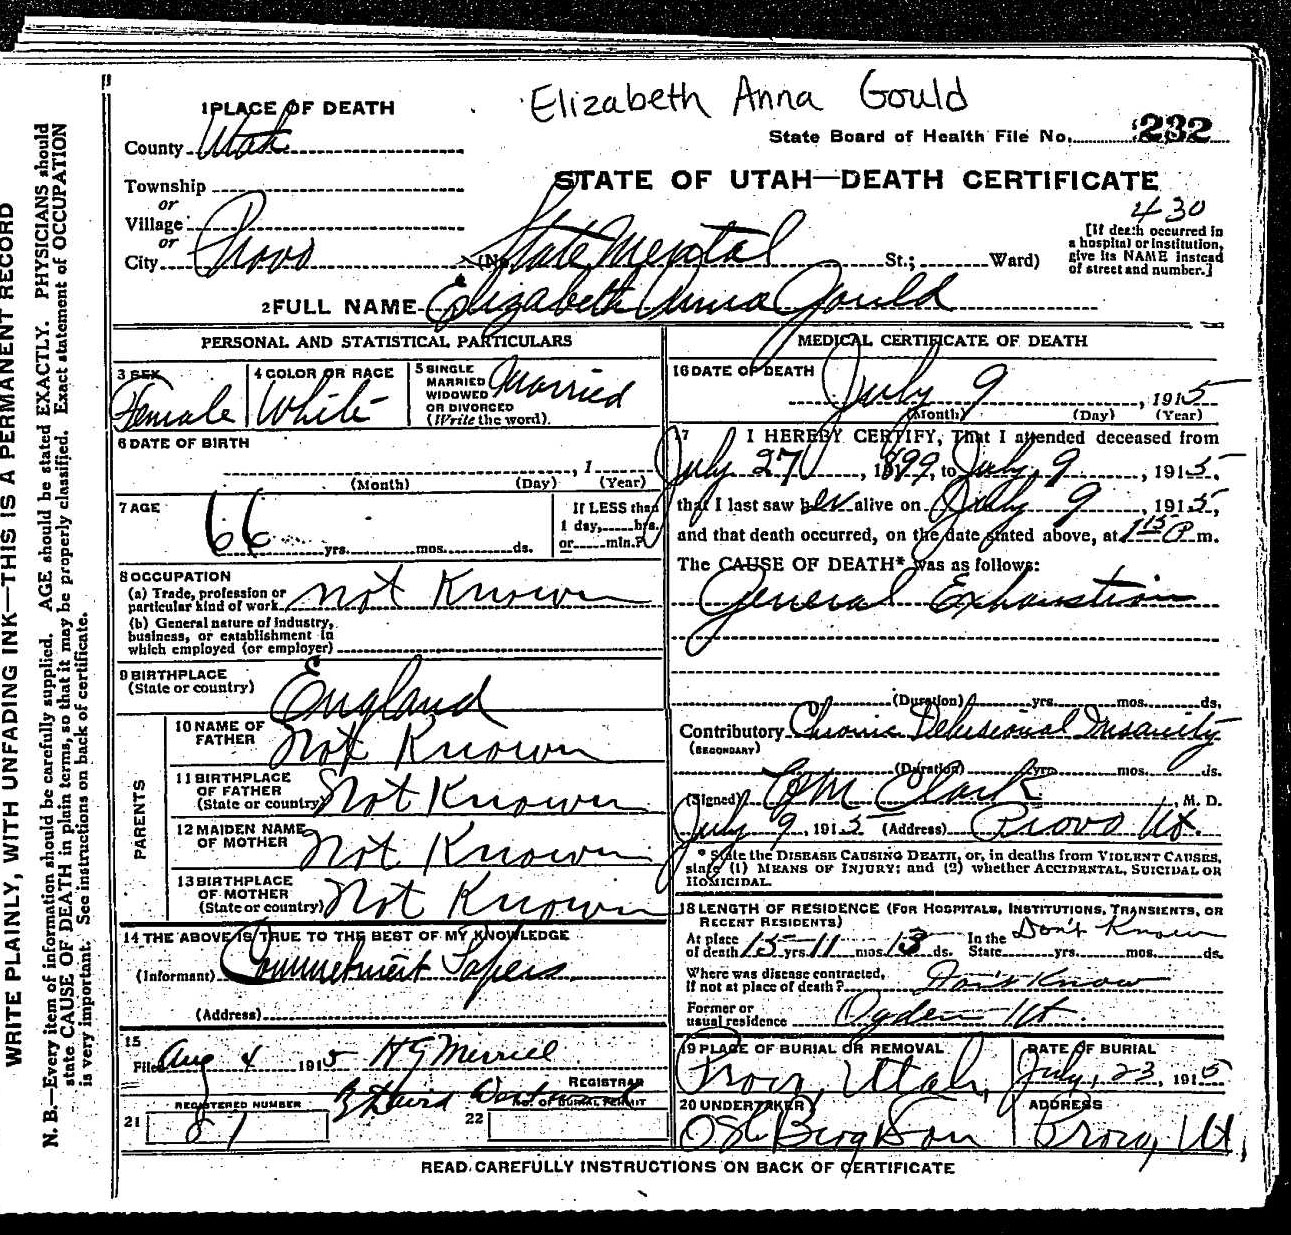 Elizabeth Anna Gould
1 PLACE OF DEATH
State Board of Health File No. 232
County Utah
STATE OF UTAH—DEATH CERTIFICATE
Township
or
430
Village
or
[If death occurred in a hospital or institution, give its NAME instead of street and number.]
City Provo (No. State Mental St.; Ward)
2 FULL NAME Elizabeth Anna Gould
PERSONAL AND STATISTICAL PARTICULARS
3 SEX Female
4 COLOR OR RACE White
5 SINGLE MARRIED WIDOWED OR DIVORCED (Write the word). Married
6 DATE OF BIRTH
, 1
(Month) (Day) (Year)
7 AGE
66 yrs. mos. ds.
If LESS than 1 day, hrs. or min.?
8 OCCUPATION
(a) Trade, profession or particular kind of work not Known
(b) General nature of industry, business, or establishment in which employed (or employer)
9 BIRTHPLACE
(State or country) England
PARENTS
10 NAME OF FATHER Not Known
11 BIRTHPLACE OF FATHER (State or country) Not Known
12 MAIDEN NAME OF MOTHER Not Known
13 BIRTHPLACE OF MOTHER (State or country) Not Known
14 THE ABOVE IS TRUE TO THE BEST OF MY KNOWLEDGE
(Informant) Commitment Papers
(Address)
15
Filed Aug 4 1915 H G Merrill
REGISTRAR
REGISTERED NUMBER
NO. OF BURIAL PERMIT
21 87
22
MEDICAL CERTIFICATE OF DEATH
16 DATE OF DEATH
July 9, 1915
(Month) (Day) (Year)
17 I HEREBY CERTIFY, That I attended deceased from
July 27, 1899, to July 9, 1915,
that I last saw her alive on July 9, 1915,
and that death occurred, on the date stated above, at 1 15 P m.
The CAUSE OF DEATH* was as follows:
General Exhaustion
(Duration) yrs. mos. ds.
Contributory Chronic Delusional Insanity
(SECONDARY)
(Duration) yrs. mos. ds.
(Signed) Clark, M. D.
July 9, 1915 (Address) Provo Ut.
* State the DISEASE CAUSING DEATH, or, in deaths from VIOLENT CAUSES, state (1) MEANS OF INJURY; and (2) whether ACCIDENTAL, SUICIDAL OR HOMICIDAL.
18 LENGTH OF RESIDENCE (FOR HOSPITALS, INSTITUTIONS, TRANSIENTS, OR RECENT RESIDENTS)
At place of death 15 yrs. 11 mos. 13 ds. In the State Don't Known yrs. mos. ds.
Where was disease contracted, if not at place of death? Don't Know
Former or usual residence Ogden Ut.
19 PLACE OF BURIAL OR REMOVAL
Provo, Utah,
DATE OF BURIAL
July, 23, 1915
20 UNDERTAKER
Berg & Son
ADDRESS
Provo, Ut
READ CAREFULLY INSTRUCTIONS ON BACK OF CERTIFICATE
WRITE PLAINLY, WITH UNFADING INK—THIS IS A PERMANENT RECORD
N. B.—Every item of information should be carefully supplied. AGE should be stated EXACTLY. PHYSICIANS should
state CAUSE OF DEATH in plain terms, so that it may be properly classified. Exact statement of OCCUPATION
is very important. See instructions on back of certificate.